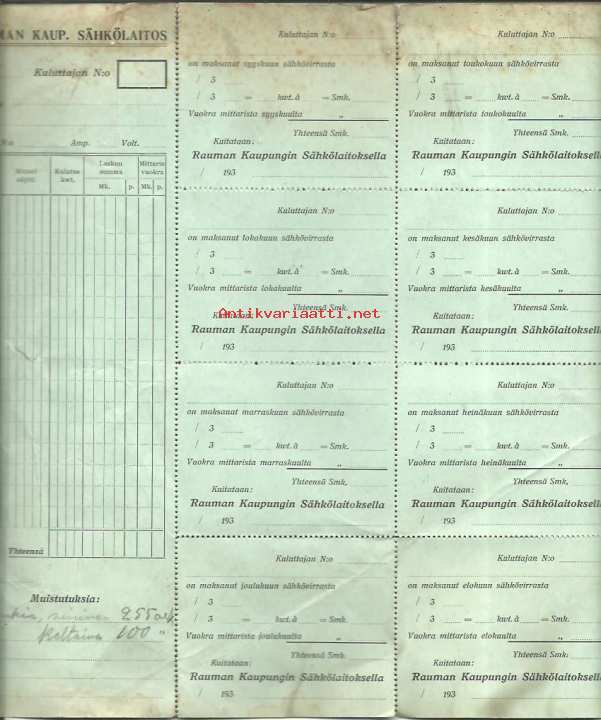 MAN KAUP. SÄHKÖLAITOS
Kuluttajan N:o
Amp. Volt.
Kulutus kwt.
Laskun summa
Mittarin vuokra
Mk. p. Mk. p.
Yhteensä
Muistutuksia:
255
Keltaiva 100 "
Kuluttajan N:o
on maksanut syyskuun sähkövirrasta
/ 3
/ 3 = kwt. à = Smk.
Vuokra mittarista syyskuulta "
Yhteensä Smk.
Kuitataan:
Rauman Kaupungin Sähkölaitoksella
/ 193
Kuluttajan N:o
on maksanut lokakuun sähkövirrasta
/ 3
/ 3 = kwt. à = Smk.
Vuokra mittarista lokakuulta "
Yhteensä Smk.
Antikvariaatti.net
Kuitataan:
Rauman Kaupungin Sähkölaitoksella
/ 193
Kuluttajan N:o
on maksanut marraskuun sähkövirrasta
/ 3
/ 3 = kwt. à = Smk.
Vuokra mittarista marraskuulta "
Yhteensä Smk.
Kuitataan:
Rauman Kaupungin Sähkölaitoksella
/ 193
Kuluttajan N:o
on maksanut joulukuun sähkövirrasta
/ 3
/ 3 = kwt. à = Smk.
Vuokra mittarista joulukuulta "
Yhteensä Smk.
Kuitataan:
Rauman Kaupungin Sähkölaitoksella
/ 193
Kuluttajan N:o
on maksanut toukokuun sähkövirrasta
/ 3
/ 3 = kwt. à = Smk.
Vuokra mittarista toukokuulta "
Yhteensä Smk.
Kuitataan:
Rauman Kaupungin Sähkölaitoksella
/ 193
Kuluttajan N:o
on maksanut kesäkuun sähkövirrasta
/ 3
/ 3 = kwt. à = Smk.
Vuokra mittarista kesäkuulta "
Yhteensä Smk.
Kuitataan:
Rauman Kaupungin Sähkölaitoksella
/ 193
Kuluttajan N:o
on maksanut heinäkuun sähkövirrasta
/ 3
/ 3 = kwt. à = Smk.
Vuokra mittarista heinäkuulta "
Yhteensä Smk.
Kuitataan:
Rauman Kaupungin Sähkölaitoksella
/ 193
Kuluttajan N:o
on maksanut elokuun sähkövirrasta
/ 3
/ 3 = kwt. à = Smk.
Vuokra mittarista elokuulta "
Yhteensä Smk.
Kuitataan:
Rauman Kaupungin Sähkölaitoksella
/ 193